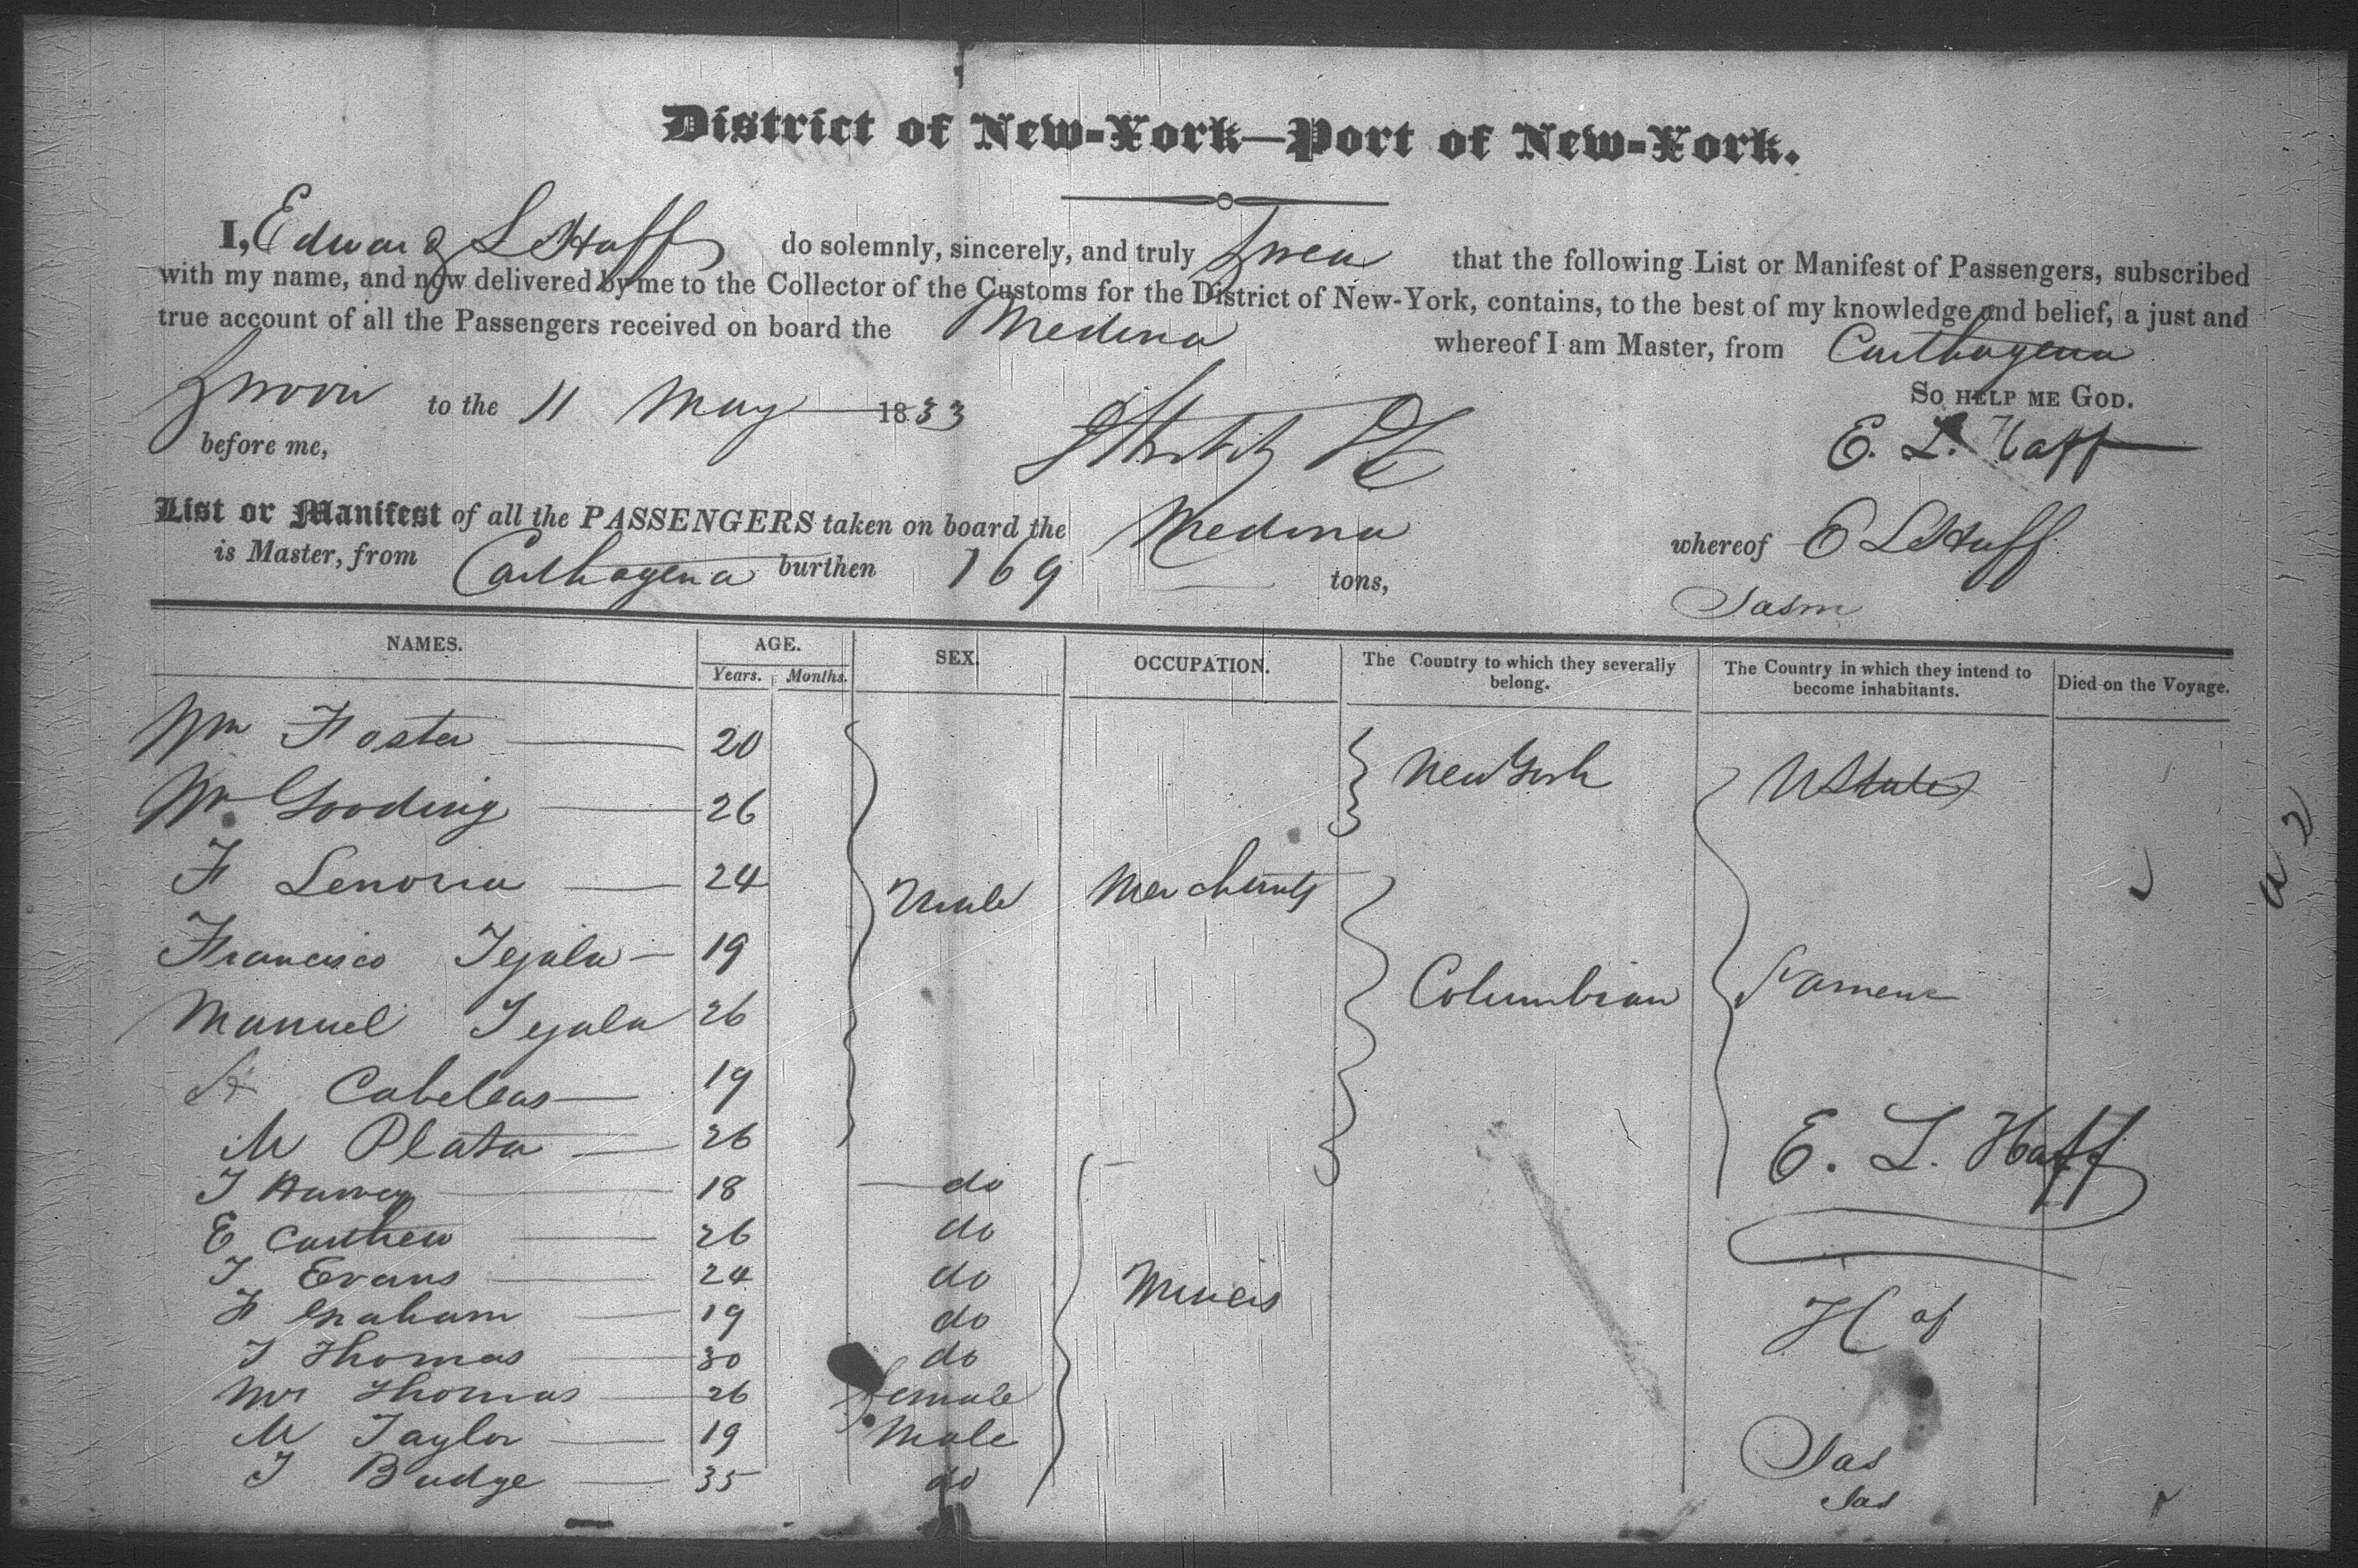 District of New-York—Port of New-York.
I, Edward L Haff do solemnly, sincerely, and truly Swear that the following List or Manifest of Passengers, subscribed
with my name, and now delivered by me to the Collector of the Customs for the District of New-York, contains, to the best of my knowledge and belief, a just and
true account of all the Passengers received on board the Medina whereof I am Master, from Carthagena
Sworn to the 11 May 1833 So help me God.
before me, E. L. Haff
List or Manifest of all the PASSENGERS taken on board the Medina whereof E L Haff
is Master, from Carthagena burthen 169 tons,
NAMES. AGE. SEX. OCCUPATION. The Country to which they severally belong. The Country in which they intend to become inhabitants. Died on the Voyage.
Years. Months.
Wm Foster 20 New York U States
Mr Gooding 26
F Lenoria 24 Male Merchants
Francisco Tejala 19 Columbian
Manuel Tejala 26
Cabeleas 19
M Plata 26
T Harvey 18 do E. L. Haff
E Carthew 26 do
T Evans 24 do Miners
F Graham 19 do
T Thomas 30 do
Mrs Thomas 26 female
M Taylor 19 Male
T Budge 35 do